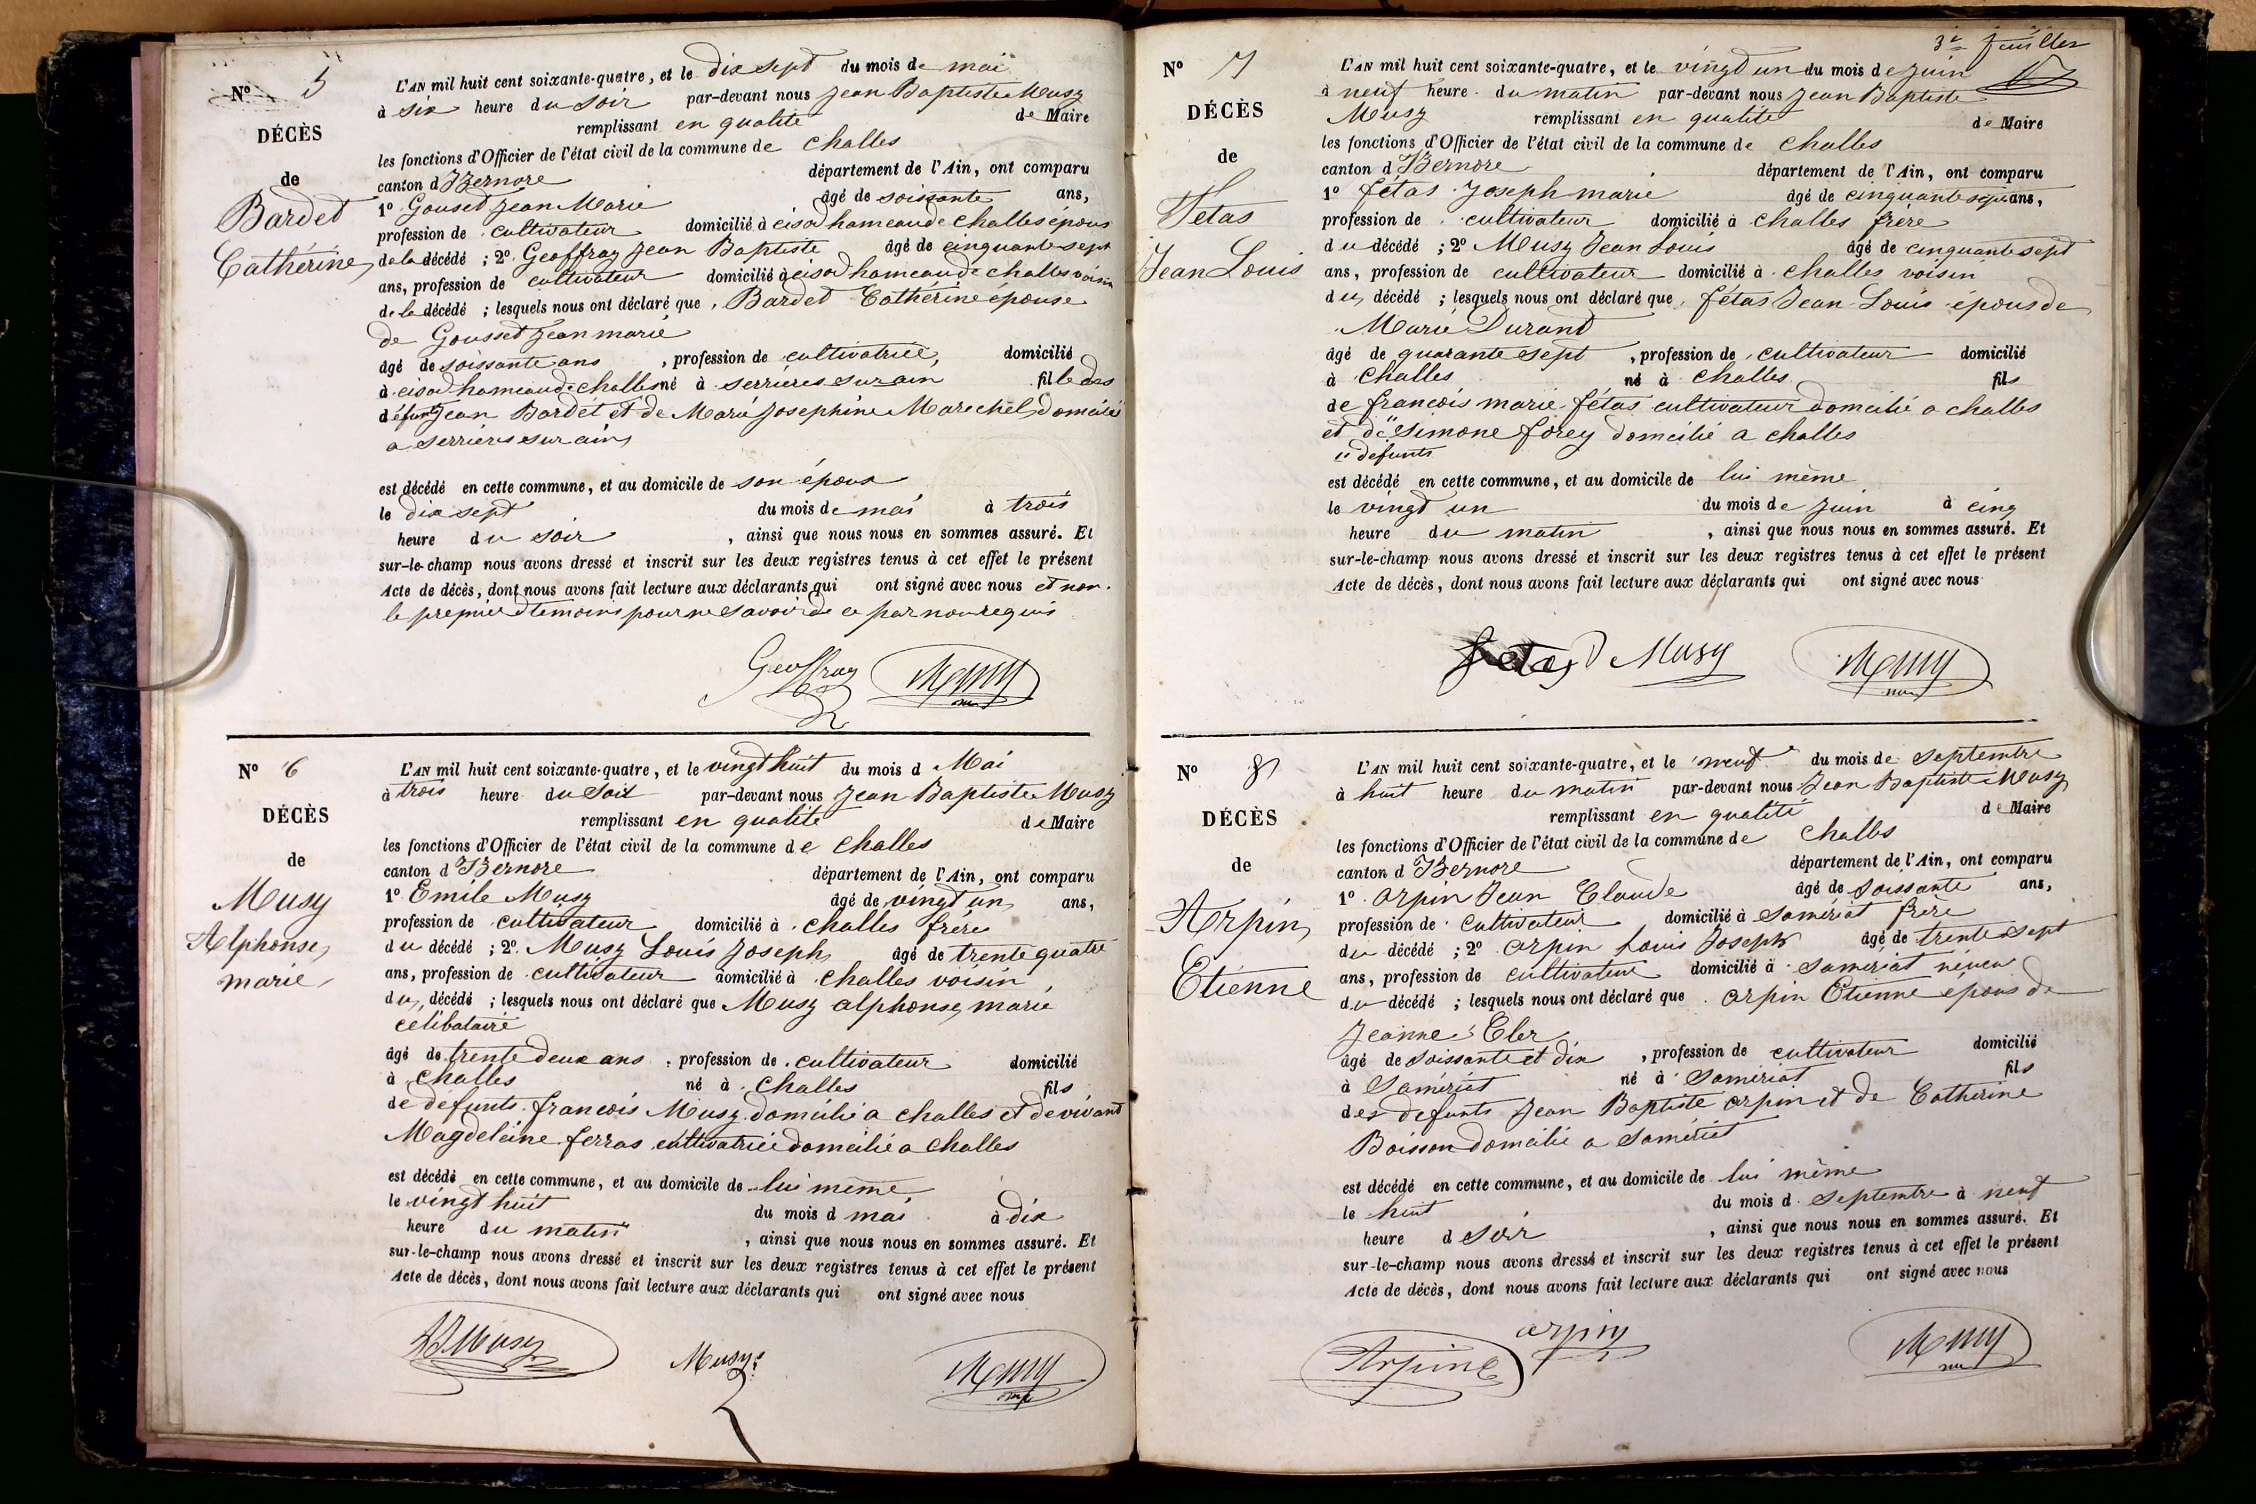 N° 5
DÉCÈS
de
Bardet
Catherine
L'AN mil huit cent soixante-quatre, et le dix sept du mois de mai
à six heure du soir par-devant nous Jean Baptiste Musy
remplissant en qualité de Maire
les fonctions d'Officier de l'état civil de la commune de Challes
canton d'Izernore département de l'Ain, ont comparu
1° Gousset Jean Marie âgé de soissante ans,
profession de cultivateur domicilié à cisod hameau de Challes épous
de la décédé ; 2° Geoffray Jean Baptiste âgé de cinquante sept
ans, profession de cultivateur domicilié à cisod hameau de Challes voisin
de la décédé ; lesquels nous ont déclaré que Bardet Cathérine épouse
de Gousset Jean marie
âgé de soissante ans , profession de cultivatrice, domicilié
à cisod hameau de challes né à serrières sur ain fille des
défunt Jean Bardet et de Marie Josephine Marechel domicilié
a serrières sur ain
est décédé en cette commune, et au domicile de son épous
le dix sept du mois de mai à trois
heure du soir , ainsi que nous nous en sommes assuré. Et
sur-le-champ nous avons dressé et inscrit sur les deux registres tenus à cet effet le présent
Acte de décès, dont nous avons fait lecture aux déclarants qui ont signé avec nous et non
le premier temoins pour ne savoir de ce par nous requis
Geoffray Musy
N° 6
DÉCÈS
de
Musy
Alphonse
marie
L'AN mil huit cent soixante-quatre, et le vingt huit du mois d Mai
à trois heure du Soir par-devant nous Jean Baptiste Musy
remplissant en qualité de Maire
les fonctions d'Officier de l'état civil de la commune de Challes
canton d'Izernore département de l'Ain, ont comparu
1° Emile Musy âgé de vingt un ans,
profession de cultivateur domicilié à challes frère
du décédé ; 2° Musy Louis Joseph âgé de trente quatre
ans, profession de cultivateur domicilié à challes voisin
du décédé ; lesquels nous ont déclaré que Musy alphonse marie
célibataire
âgé de trente deux ans , profession de cultivateur domicilié
à challes né à challes fils
de défunts francois Musy domicilié a challes et de vivant
Magdeleine ferras cultivatrice domicilié a challes
est décédé en cette commune, et au domicile de lui même
le vingt huit du mois d mai à dix
heure du matin , ainsi que nous nous en sommes assuré. Et
sur-le-champ nous avons dressé et inscrit sur les deux registres tenus à cet effet le présent
Acte de décès, dont nous avons fait lecture aux déclarants qui ont signé avec nous
LJ Musy Musy Musy
3e feuillet
N° 7
DÉCÈS
de
Fetas
Jean Louis
L'AN mil huit cent soixante-quatre, et le vingt un du mois de Juin
à neuf heure du matin par-devant nous Jean Baptiste
Musy remplissant en qualité de Maire
les fonctions d'Officier de l'état civil de la commune de Challes
canton d'Izernore département de l'Ain, ont comparu
1° fétas Joseph marie âgé de cinquante sept ans,
profession de cultivateur domicilié à challes frère
du décédé ; 2° Musy Jean Louis âgé de cinquante sept
ans, profession de cultivateur domicilié à challes voisin
du décédé ; lesquels nous ont déclaré que fétas Jean Louis épous de
Marie Durand
âgé de quarante sept , profession de cultivateur domicilié
à Challes né à challes fils
de francois marie fétas cultivateur domicilié a challes
et de simone forey domicilié a challes
défunts
est décédé en cette commune, et au domicile de lui même
le vingt un du mois de Juin à cinq
heure du matin , ainsi que nous nous en sommes assuré. Et
sur-le-champ nous avons dressé et inscrit sur les deux registres tenus à cet effet le présent
Acte de décès, dont nous avons fait lecture aux déclarants qui ont signé avec nous
fetas Musy Musy
N° 8
DÉCÈS
de
Arpin
Etienne
L'AN mil huit cent soixante-quatre, et le neuf du mois de septembre
à huit heure du matin par-devant nous Jean Baptiste Musy
remplissant en qualité de Maire
les fonctions d'Officier de l'état civil de la commune de Challes
canton d'Izernore département de l'Ain, ont comparu
1° arpin Jean Claude âgé de soissante ans,
profession de cultivateur domicilié à samériat frère
du décédé ; 2° arpin Louis Joseph âgé de trente sept
ans, profession de cultivateur domicilié à samériat néveu
du décédé ; lesquels nous ont déclaré que arpin Etienne épous de
Jeanne Cler
âgé de soissante et dix , profession de cultivateur domicilié
à Samériat né à Samériat fils
des défunts Jean Baptiste arpin et de Catherine
Boisson domicilié a Samériat
est décédé en cette commune, et au domicile de lui même
le huit du mois d septembre à neuf
heure d soir , ainsi que nous nous en sommes assuré. Et
sur-le-champ nous avons dressé et inscrit sur les deux registres tenus à cet effet le présent
Acte de décès, dont nous avons fait lecture aux déclarants qui ont signé avec nous
Arpin arpin Musy